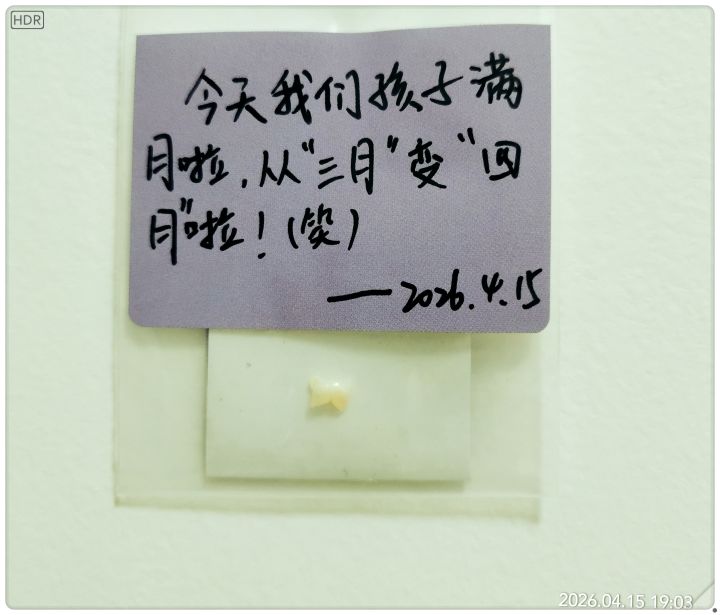 HDR
今天我们孩子满
月啦,从"三月"变"四
月"啦!(笑)
——2026.4.15
2026.04.15 19:03